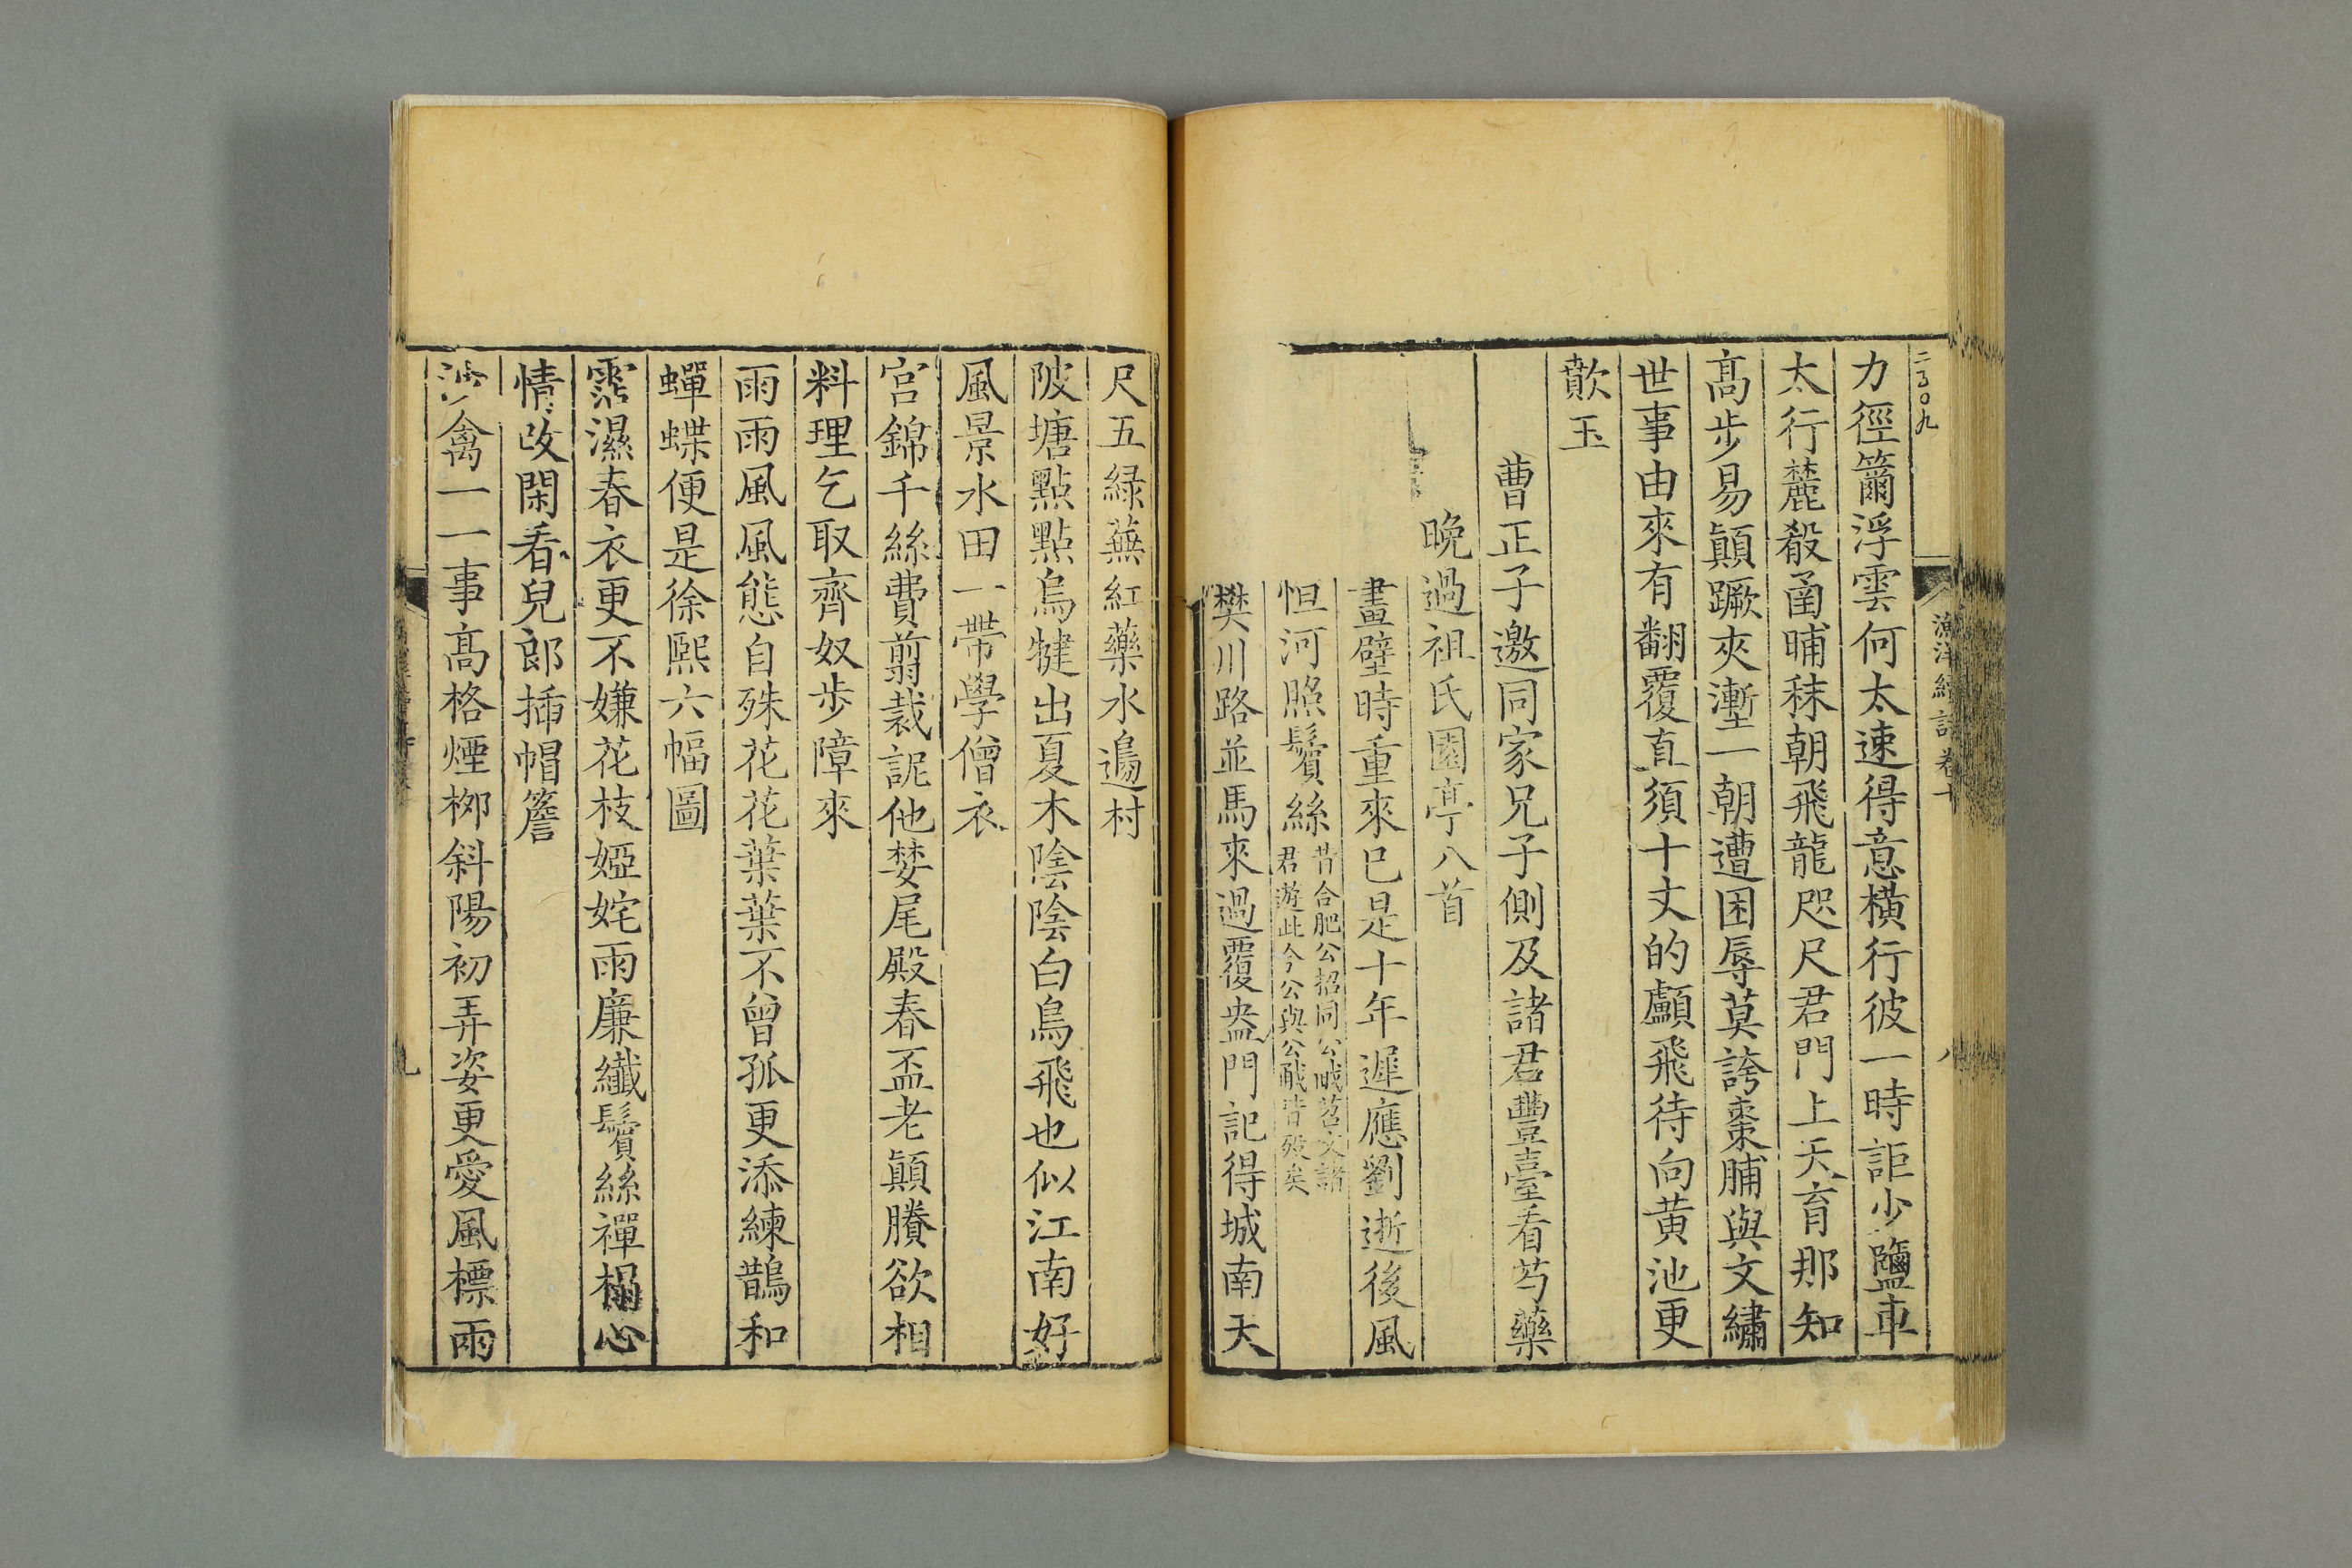 二百〇九
漁洋續詩卷十
八
力徑籋浮雲何太速得意橫行彼一時詎少鹽車
太行麓殽圅晡秣朝飛龍咫尺君門上天育那知
高步易顛蹶夾漸一朝遭困辱莫誇棗脯與文繡
世事由來有翻覆直須十丈的顱飛待向黃池更
歕玉
曹正子邀同家兄子側及諸君豐臺看芍藥
晚過祖氏園亭八首
畫壁時重來已是十年遲應劉逝後風
怛河照鬢絲
昔合肥公招同公㦷苕文諸
君遊此今公與公㦷皆殁矣
樊川路並馬來過覆盎門記得城南天
尺五綠蕪紅藥水邊村
陂塘點點烏犍出夏木陰陰白鳥飛也似江南好
風景水田一帶學僧衣
宮錦千絲費翦裁誽他婪尾殿春盃老顛賸欲相
料理乞取齊奴步障來
雨雨風風態自殊花花葉葉不曾孤更添練鵲和
蟬蝶便是徐熙六幅圖
霑濕春衣更不嫌花枝婭姹雨廉纖鬢絲禪榻心
情改閑看兒郎插帽簷
禽一一事高格煙栁斜陽初弄姿更愛風標雨
九